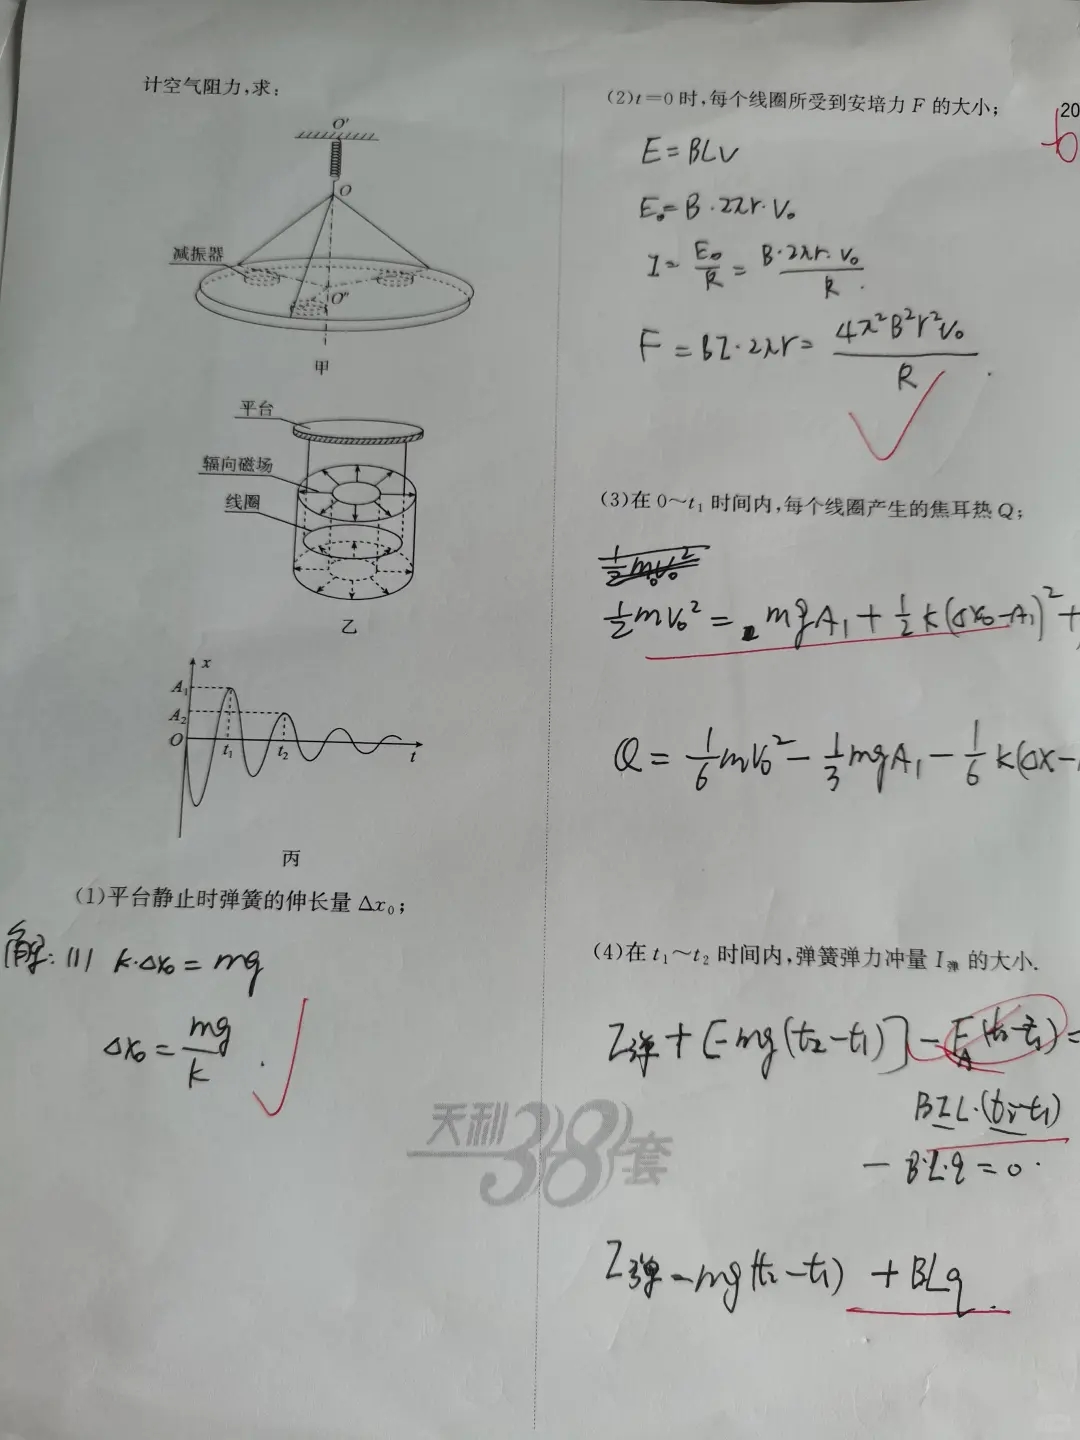 计空气阻力,求:
O'
O
减振器
O''
甲
平台
辐向磁场
线圈
乙
x
A₁
A₂
O
t₁
t₂
t
丙
(1)平台静止时弹簧的伸长量 Δx₀;
解: (1) k·Δx₀ = mg
Δx₀ = mg/k.
天利38套
20
6
(2)t=0时,每个线圈所受到安培力 F 的大小;
E = BLv
E₀ = B·2πr·v₀
I = E₀/R = B·2πr·v₀/R.
F = BI·2πr = 4π²B²r²v₀/R.
(3)在 0~t₁ 时间内,每个线圈产生的焦耳热 Q;
½mv₀² = mgA₁ + ½k(Δx₀-A₁)² +
Q = 1/6 mv₀² - 1/3 mgA₁ - 1/6 k(Δx-
(4)在 t₁~t₂ 时间内,弹簧弹力冲量 I弹 的大小.
I弹 + [-mg(t₂-t₁)] - F_A(t₂-t₁) =
BIL·(t₂-t₁)
- B·L·q = 0.
I弹 - mg(t₂-t₁) + BLq.